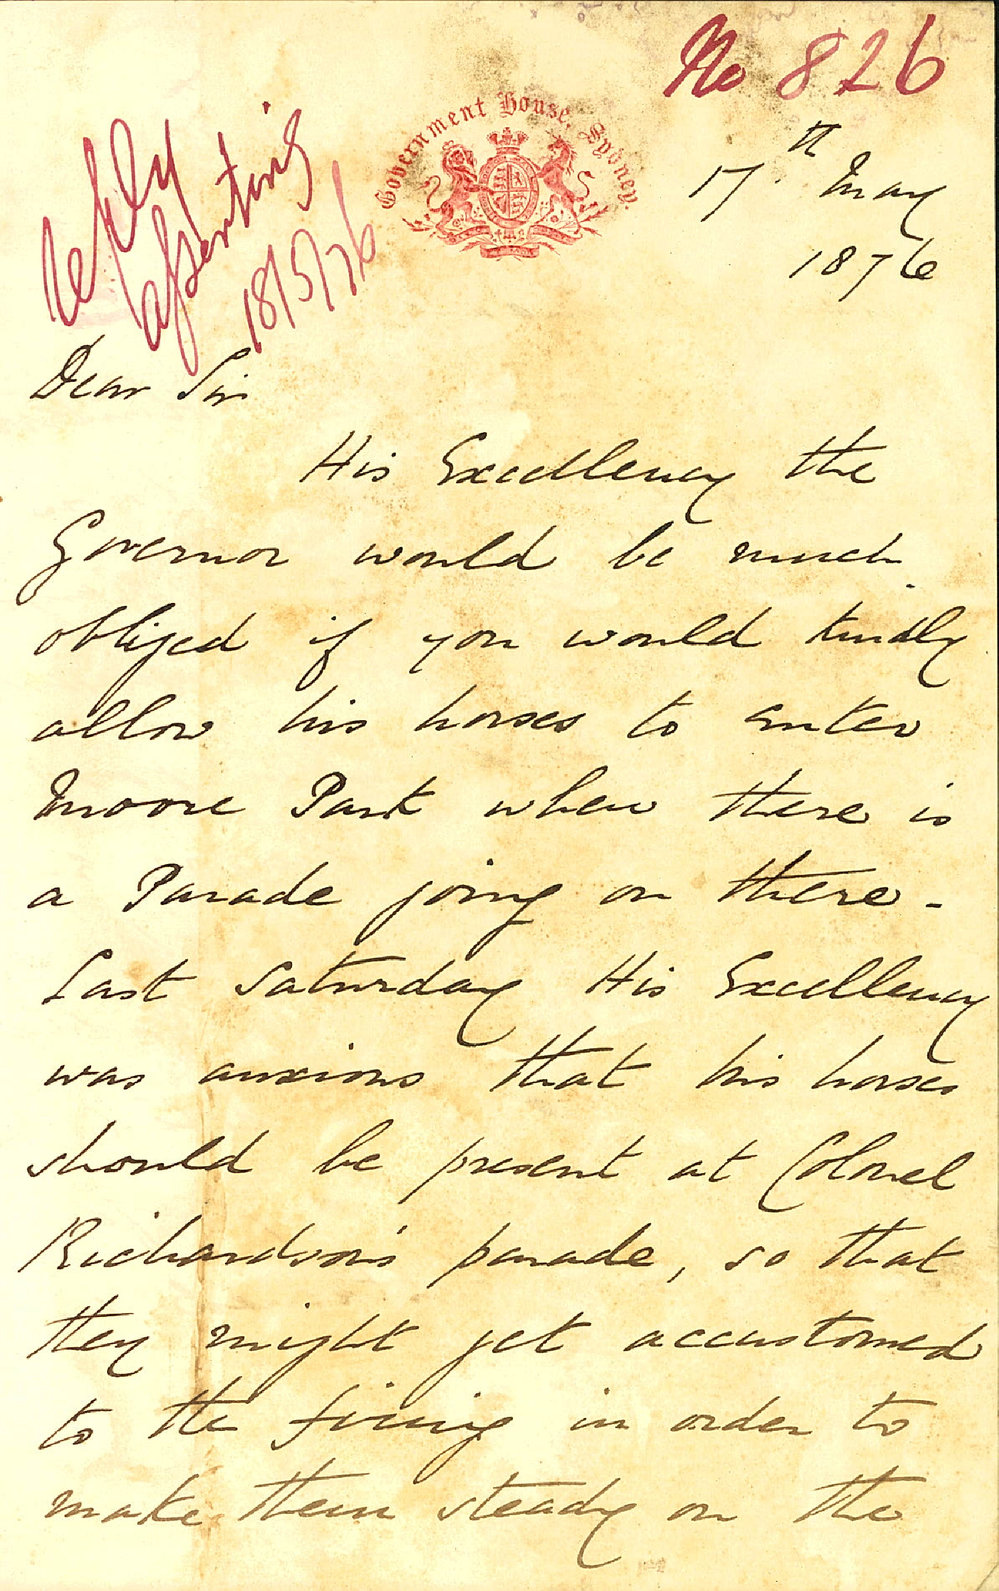 No 826
Government House, Sydney.
17th May
1876
reply
asserting
18/5/76
Dear Sir
His Excellency the
Governor would be much
obliged if you would kindly
allow his horses to enter
Moore Park when there is
a Parade going on there -
Last Saturday His Excellency
was anxious that his horses
should be present at Colonel
Richardson's parade, so that
they might get accustomed
to the firing in order to
make them steady on the